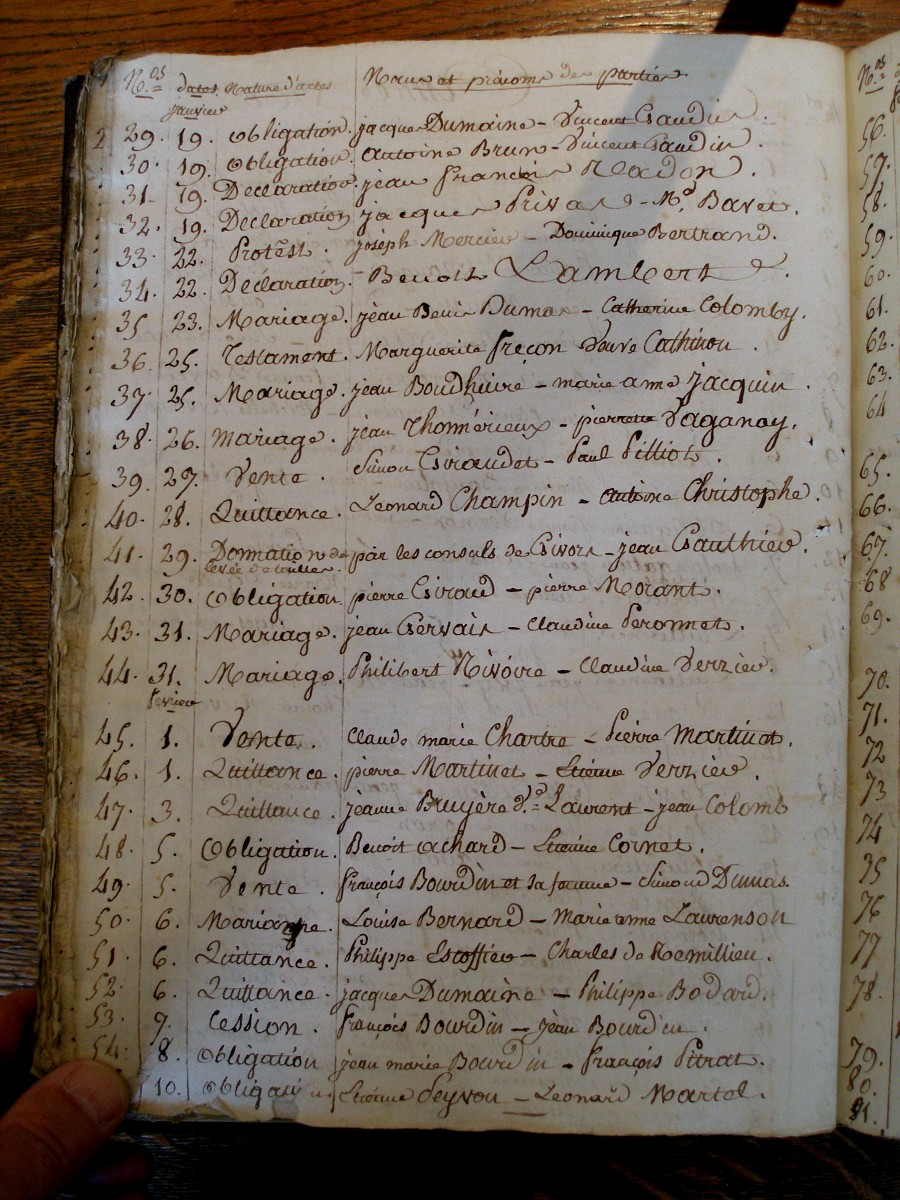 N.os dates Nature d'actes Noms et prénoms des parties
janvier
29. 19. Obligation. jacques Dumaine - Vincent Gaudin.
30. 19. Obligation. Antoine Brun - Vincent Gaudin.
31. 19. Declaration. jean françois Nadon.
32. 19. Declaration jacques Privas - M.d Bavet.
33. 22. Protest. joseph Mercier - Dominique Bertrand.
34. 22. Déclaration. Benoit Lambert.
35 23. Mariage. jean Dumas - Catherine Colomby.
36. 25. Testament. Marguerite freçon Veuve Cathinou.
37. 25. Mariage. jean Boudhuire - marie anne jacquin.
38. 26. Mariage. jean Thomérieux - pierrette Vaganay.
39. 27. Vente. Simon Giraudet - Paul Pilliot.
40. 28. Quittance. Leonard Champin - Antoine Christophe.
41. 29. Donnation de par les consuls de Givors - jean Gauthier.
42. 30. Obligation. pierre Giraud - pierre Morant.
43. 31. Mariage. jean Gervais - Claudine Peronnet.
44. 31. Mariage. Philibert Nivoire - Claudine Verzier.
fevrier
45. 1. Vente. Claude marie Chartre - Pierre Martinat.
46. 1. Quittance. pierre Martinet - Etienne Verzier.
47. 3. Quittance. jeanne Bruyère Laurent - jean Colomb
48. 5. Obligation. Benoit achard - Etienne Cornet.
49. 5. Vente. françois Bourdin et sa femme - Simond Dumas.
50. 6. Mariage. Louise Bernard - Marie anne Laurenson
51. 6. Quittance. Philippe Escoffier - Charles de Remillieu.
52. 6. Quittance. jacques Dumaine - Philippe Bodard.
53. 7. Cession. françois Bourdin - jean Bourdin.
54. 8. Obligation jean marie Bourdin - françois Pitrat.
10. Obligation. Etienne Peyvou - Leonard Martel.
N.os
56.
57.
58.
59.
60.
61.
62.
63.
64
65.
66.
67.
68
69.
70.
71.
72
73
74
35
76
77
78.
79.
80.
81.